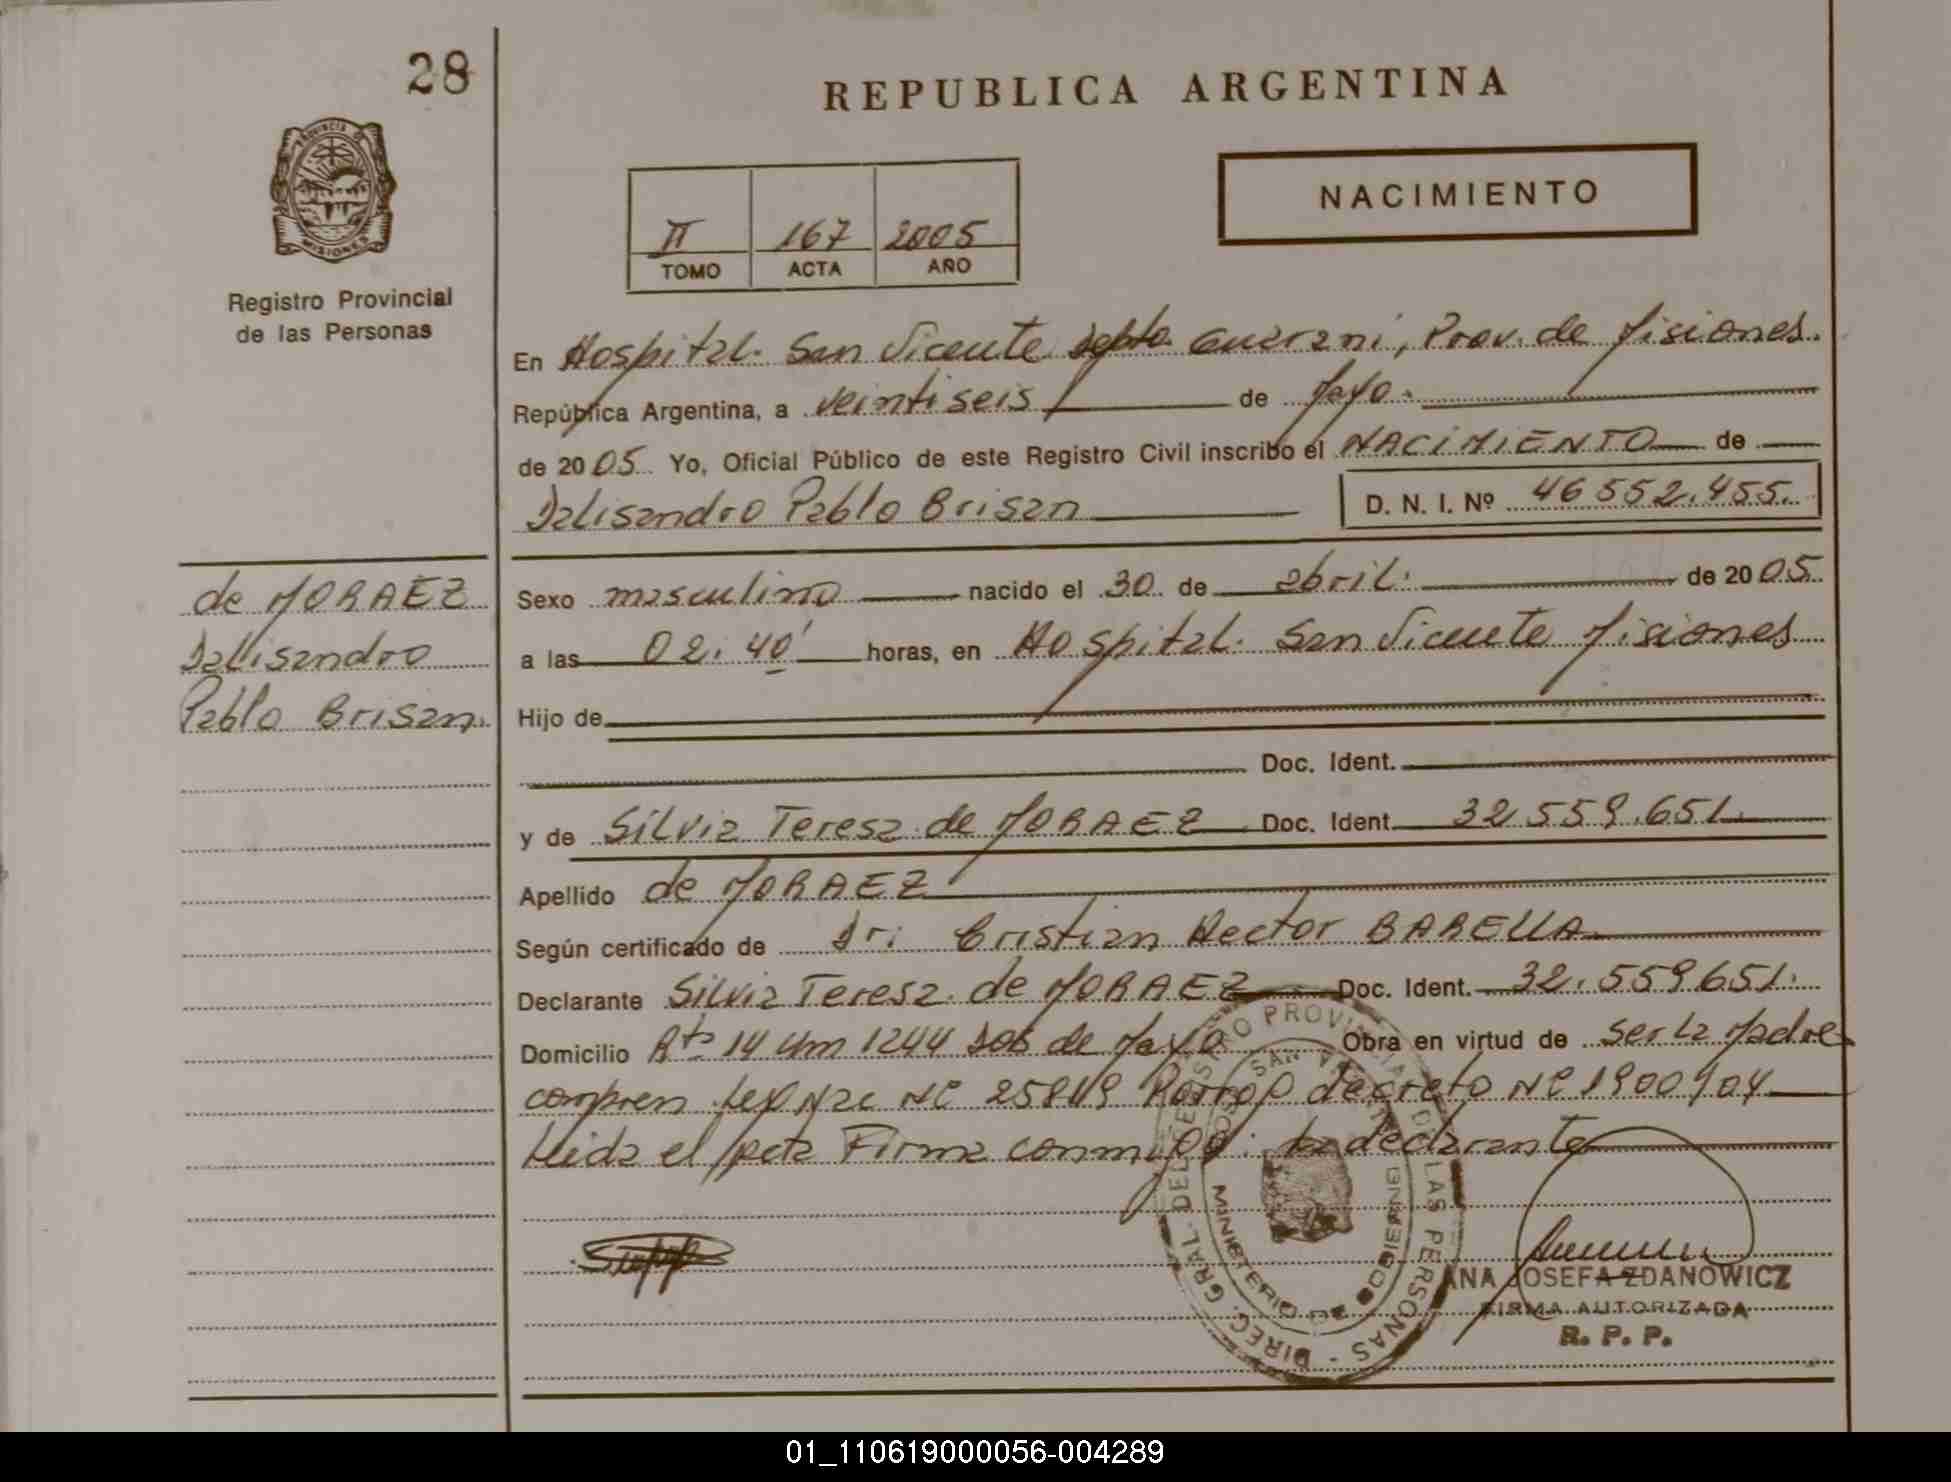 28
REPUBLICA ARGENTINA
PROVINCIA DE
MISIONES
NACIMIENTO
II 167 2005
TOMO ACTA AÑO
Registro Provincial
de las Personas
En Hospital. San Vicente Depto. Guarani, Prov. de Misiones.
República Argentina, a veintiseis de Mayo.
de 2005. Yo, Oficial Público de este Registro Civil inscribo el NACIMIENTO de
Dalisandro Pablo Brisan D. N. I. Nº 46552.455.
de MORAEZ
Dalisandro
Pablo Brisan.
Sexo masculino nacido el 30 de abril. de 2005.
a las 02.40' horas, en Hospital. San Vicente Misiones
Hijo de
Doc. Ident.
y de Silvia Teresa de MORAEZ Doc. Ident. 32.559.651.
Apellido de MORAEZ
Según certificado de Dr: Cristian Hector BARELLA
Declarante Silvia Teresa de MORAEZ Doc. Ident. 32.559651.
Domicilio Rta 14 Km 1244 Dos de Mayo Obra en virtud de ser la Madre
Nac Nº 25819 decreto Nº 1900/04
Leida el acta Firma conmigo: la declarante
DIREC. GRAL. DEL REGISTRO PROVINCIAL DE LAS PERSONAS
MINISTERIO DE GOBIERNO
ANA JOSEFA ZDANOWICZ
FIRMA AUTORIZADA
R. P. P.
01_110619000056-004289